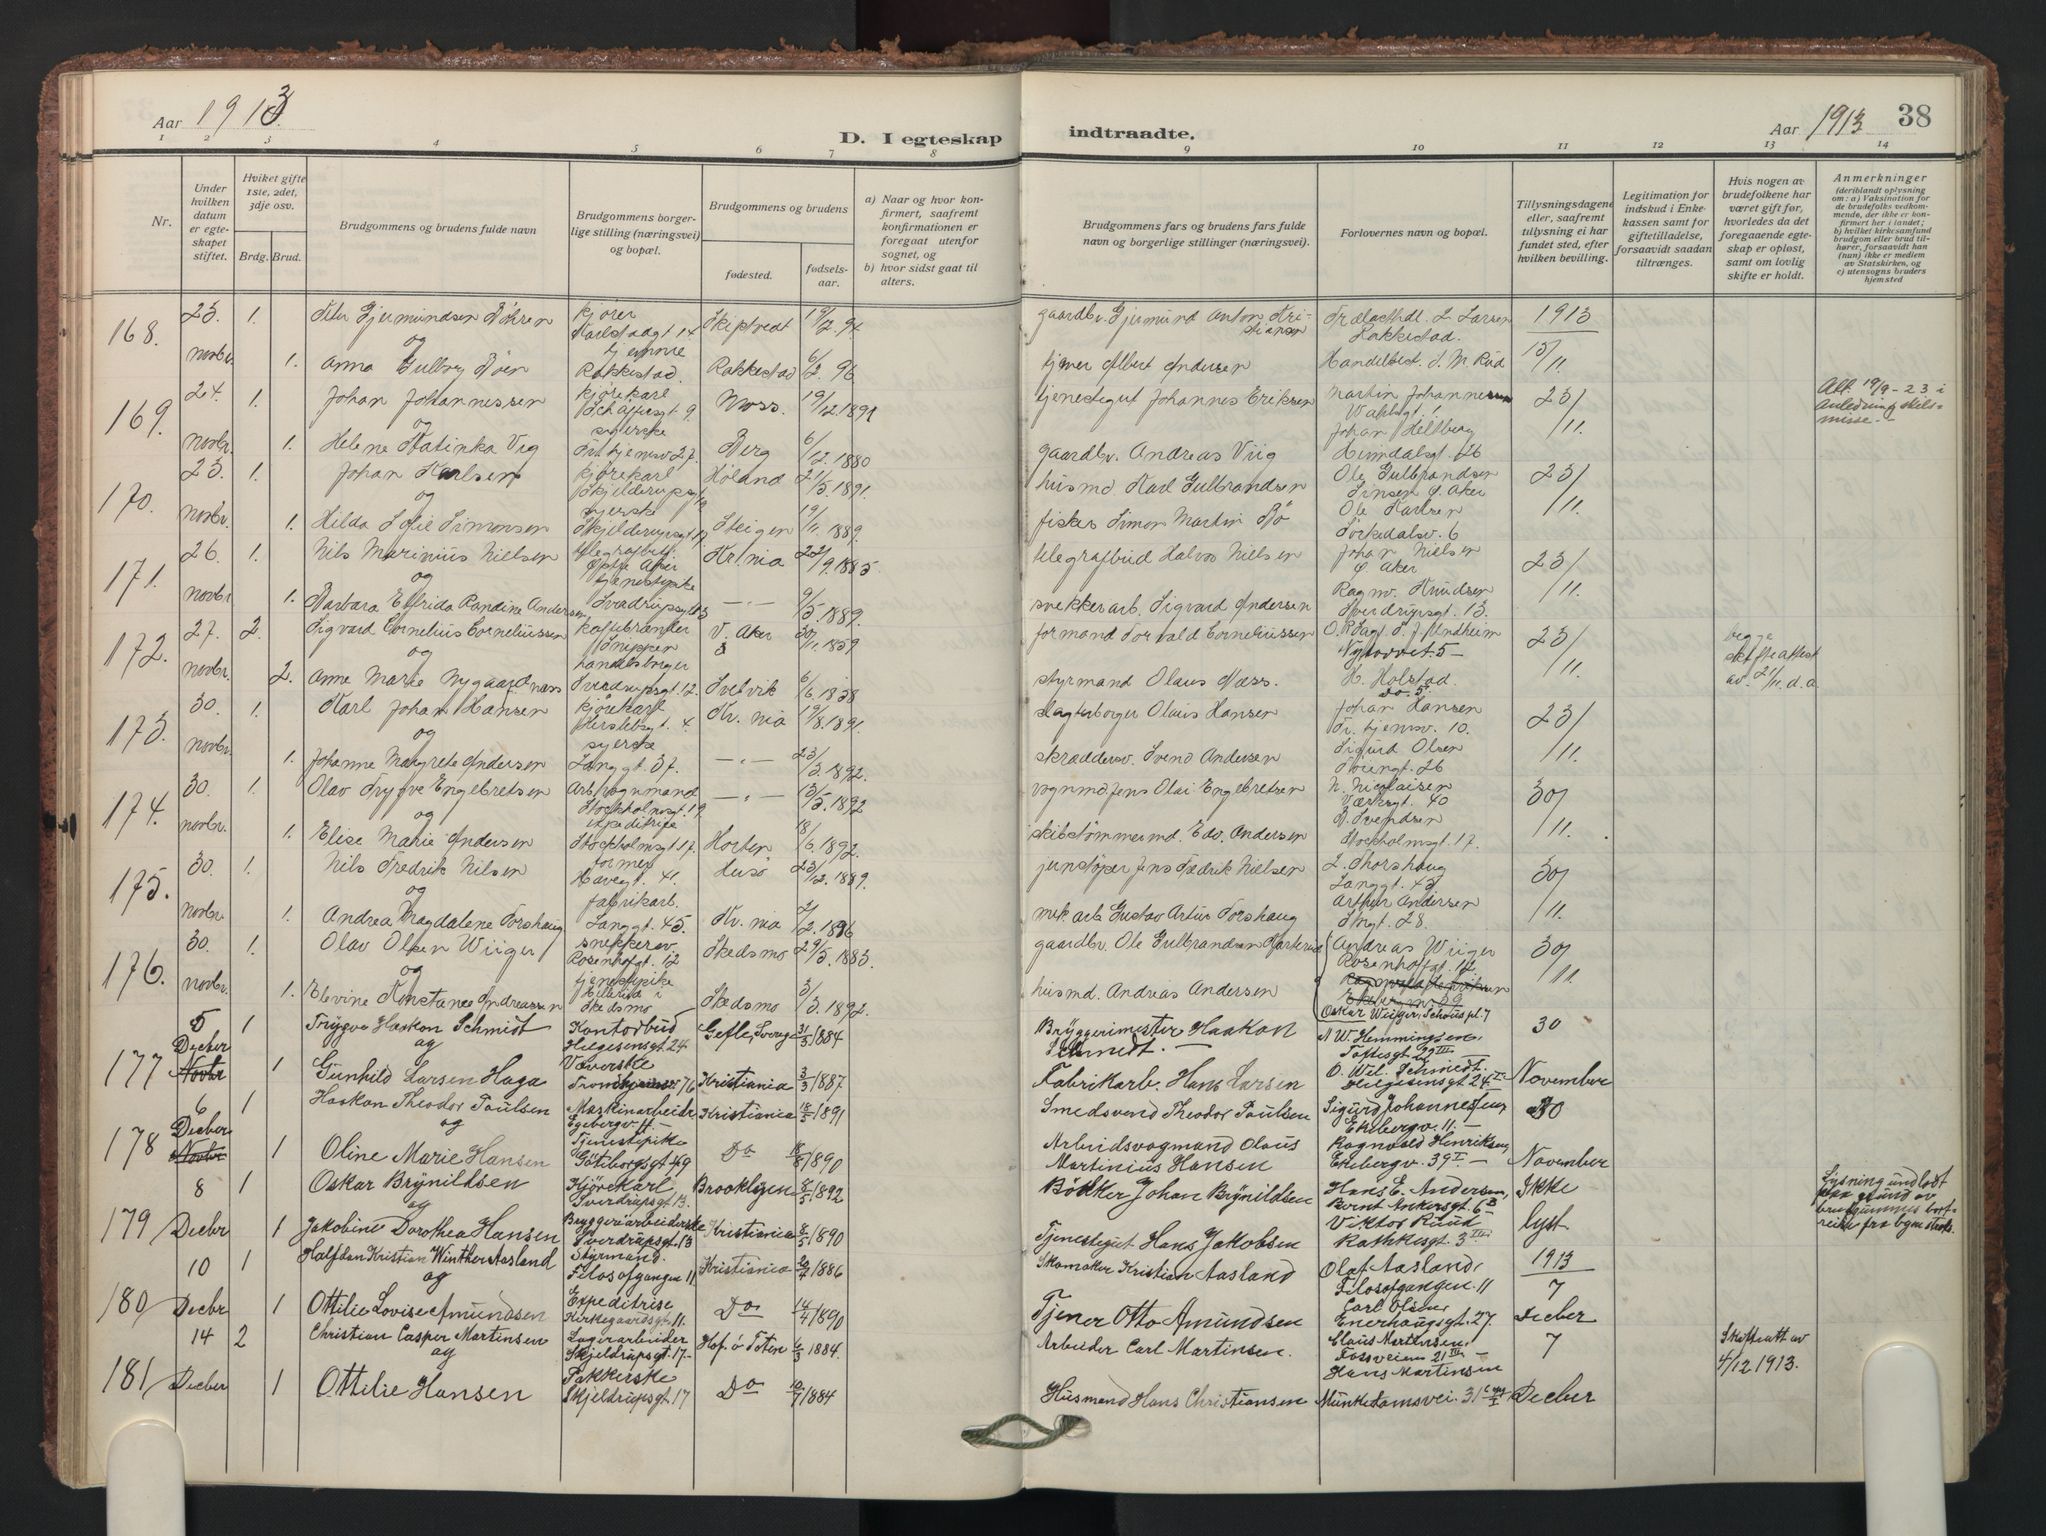 Aar 1913
D. I egteskap
indtraadte.
Aar 1913
38
1 2 3 4 5 6 7 8 9 10 11 12 13 14
Nr.
Under hvilken datum er egteskapet stiftet.
Hviket gifte 1ste, 2det, 3dje osv.
Brdg. Brud.
Brudgommens og brudens fulde navn
Brudgommens borgerlige stilling (næringsvei) og bopæl.
Brudgommens og brudens
fødested.
fødselsaar.
a) Naar og hvor konfirmert, saafremt konfirmationen er foregaat utenfor sognet, og
b) hvor sidst gaat til alters.
Brudgommens fars og brudens fars fulde navn og borgerlige stillinger (næringsvei).
Forlovernes navn og bopæl.
Tillysningsdagene eller, saafremt tillysning ei har fundet sted, efter hvilken bevilling.
Legitimation for indskud i Enkekassen samt for giftetilladelse, forsaavidt saadan tiltrænges.
Hvis nogen av brudefolkene har været gift før, hvorledes da det foregaaende egteskap er opløst, samt om lovlig skifte er holdt.
Anmerkninger
(deriblandt oplysning om: a) Vaksination for de brudefolks vedkommende, der ikke er konfirmert her i landet; b) hvilket kirkesamfund brudgom eller brud tilhører, forsaavidt han (hun) ikke er medlem av Statskirken, og c) utensogns bruders hjemsted
168. 23. novbr. 1. Gjermundsen og Skiptvedt 19/2. 94. gaardbr. Gjermund Anton Kristiansen L. Larsen Rakkestad. 1913
1. Anna Gulbry Rakkestad. Rakkestad 6/2. 96 Albert Andersen 15/11.
169. 24. novbr. 1. Johan Johannessen og kjørekarl Schaffersgt 9. Moss. 19/12 1891 tjenestegut Johannes Eriksen Martin Johannessen Vahlsgt. 1. 23/11. Att. 19/9-23 i anledning skilsmisse.
1. Helene Katinka Vig syerske Berg 6/12. 1880 gaardbr. Andreas Viig Johan Heltberg Heimdalsgt. 26
170. 23. novbr. 1. Johan Karlsen og kjørekarl Skjelderupsgt Høland 21/5. 1891. husmd. Karl Gulbrandsen Ole Gulbrandsen Sinsen Ø. Aker 23/11.
1. Hilda Sofie Simonsen syerske Skjelderupsgt Steigen 19/11. 1889. fisker Simon Martin Bø Ole Karlsen Sørkedalsv. 6
171. 26. novbr. 1. Nils Marinius Nielsen og telegrafbud. Østre Aker Kr.nia 22/9. 1885. telegrafbud Halvor Nielsen Johan Nielsen Ø. Aker 23/11.
1. Barbara Elfrida Randine Andersen tjenestepike —"— 9/5. 1889. snekkerarb. Sigvard Andersen Ragnv. Knudsen Sverdrupsgt. 13.
172. 27. novbr. 2. Sigvard Cornelius Corneliussen og kaffebrænder V. Aker 30/11. 1859 formand Torvald Corneliussen Nytorvet 5 — 23/11. begge skifteattest av 21/11. d.a.
2. Anne Marie Nygaard Næss handelsborger Sverdrupsgt. 12. Svelvik 6/6. 1858 styrmand Olaus Næss. H. Holstad. do. 5.
173. 30. novbr. 1. Karl Johan Hansen og kjørekarl Herslebsgt. 4 Kr. nia 19/8. 1891. slagterborger Olaus Hansen Johan Hansen Tr. hjemsv. 10. 23/11.
1. Johanne Margrete Andersen syerske Langgt. 37. —"— 23/3. 1892. skrædderv. Svend Andersen Sigurd Olsen Tøiengt. 26
174. 30. novbr. 1. Olav Trygve Engebretsen og Stockholmsgt. 19 —"— 13/5. 1892 vognmd Jens Olai Engebretsen N. Nicolaisen Værksgt. 40 30/11.
1. Elise Marie Andersen expeditrise Stockholmsgt. 17. Horten 18/6. 1892. skibstømmermd. Edv. Andersen B. Svendsen Stockholmsgt. 17.
175. 30. novbr. 1. Nils Fredrik Nilsen og former Havegt. 41. Husø 23/12. 1889. jernstøper Jens Fredrik Nielsen L. Thorshaug Langgt. 45 30/11.
1. Andrea Magdalene Torshaug fabrikarb. Langgt. 45. Kr. nia 2/2. 1896 mek. arb. Gustav Artur Torshaug Arthur Andersen 28.
176. 30. novbr. 1. Olav Olsen Wiiger og snekkersv. Rosenhofgt. 12 Skedsmo 29/5. 1883. gaardbr. Ole Gulbrandsen Andreas Wiiger Rosenhoffgt. 12. 30/11.
1. Elevine Konstance Andreassen tjenestepike i Skedsmo Skedsmo 3/3. 1892. husmd. Andreas Andersen Oskar Wiiger, Schous pl. 7
177 5 Decbr Novbr 1 Trygve Haakon Schmidt og Kontorbud Helgesensgt. 24 Gefle, Sverge 31/3 1884 Bryggerimester Haakon Schmidt. — N W. Hemmingsen, Toftesgt. 22 III 30 November
1 Gunhild Larsen Haga Væverske 76 Kristiania 3/3 1887 Fabrikarb. Hans Larsen O. Wil. Schmidt. Helgesensgt. 24 I
178 6 Decbr Novbr 1 Haakon Theodor Paulsen og Maskinarbeider Egebergv. 11 — Kristiania 18/5 1891 Smedsvend Theodor Paulsen Sigurd Johannesen, Ekebergv. 11. — 30 November
1 Oline Marie Hansen Tjenestepike Göteborgsgt 49 Do 18/8 1890 Arbeidsvogmand Olaus Martinius Hansen Ragnvald Henriksen, Ekebergv. 39 I. —
179 8 Decbr 1 Oskar Brynildsen og Kjørekarl Sverdrupsgt. 13. Brooklyen 8/5 1892 Bödker Johan Brynildsen Hans E. Andersen, Bernt Ankersgt. 6 B Ikke lyst Lysning undladt paa grund av brudgommens bortreise fra byen straks.
1 Jakobine Dorothea Hansen Bryggeriarbeiderske Sverdrupsgt. 13 Kristiania 8/5 1890 Tjenestegut Hans Jakobsen Viktor Ruud Rathkesgt. 3 III
180 10 Decbr 1 Halfdan Kristian Winther Aasland og Styrmand. Filosofgangen 11 Kristiania 20/7 1886 Skomaker Kristian Aasland Olaf Aasland, Filosofgangen. 11 1913 7 Decber
1 Ottilie Lovise Amundsen Expeditrise Kirkegaardsgt. 11. Do 14/4 1890 Tjener Otto Amundsen Carl Olsen, Enerhaugsgt. 27
181 14 Decbr 2 Christian Casper Martinsen og Lagerarbeider Skjeldrupsgt. 17 — Hof. ö Toten 6/3 1884. Arbeider Carl Martinsen. Claus Martinsen, Fossveien 21 III — 7 Decber Skifteatt av 4/12 1913.
1 Ottilie Hansen Pakkerske Skjeldrupsgt. 17 Do 10/7 1884 Husmand Hans Christiansen Hans Martinsen Munkedamsvei. 31